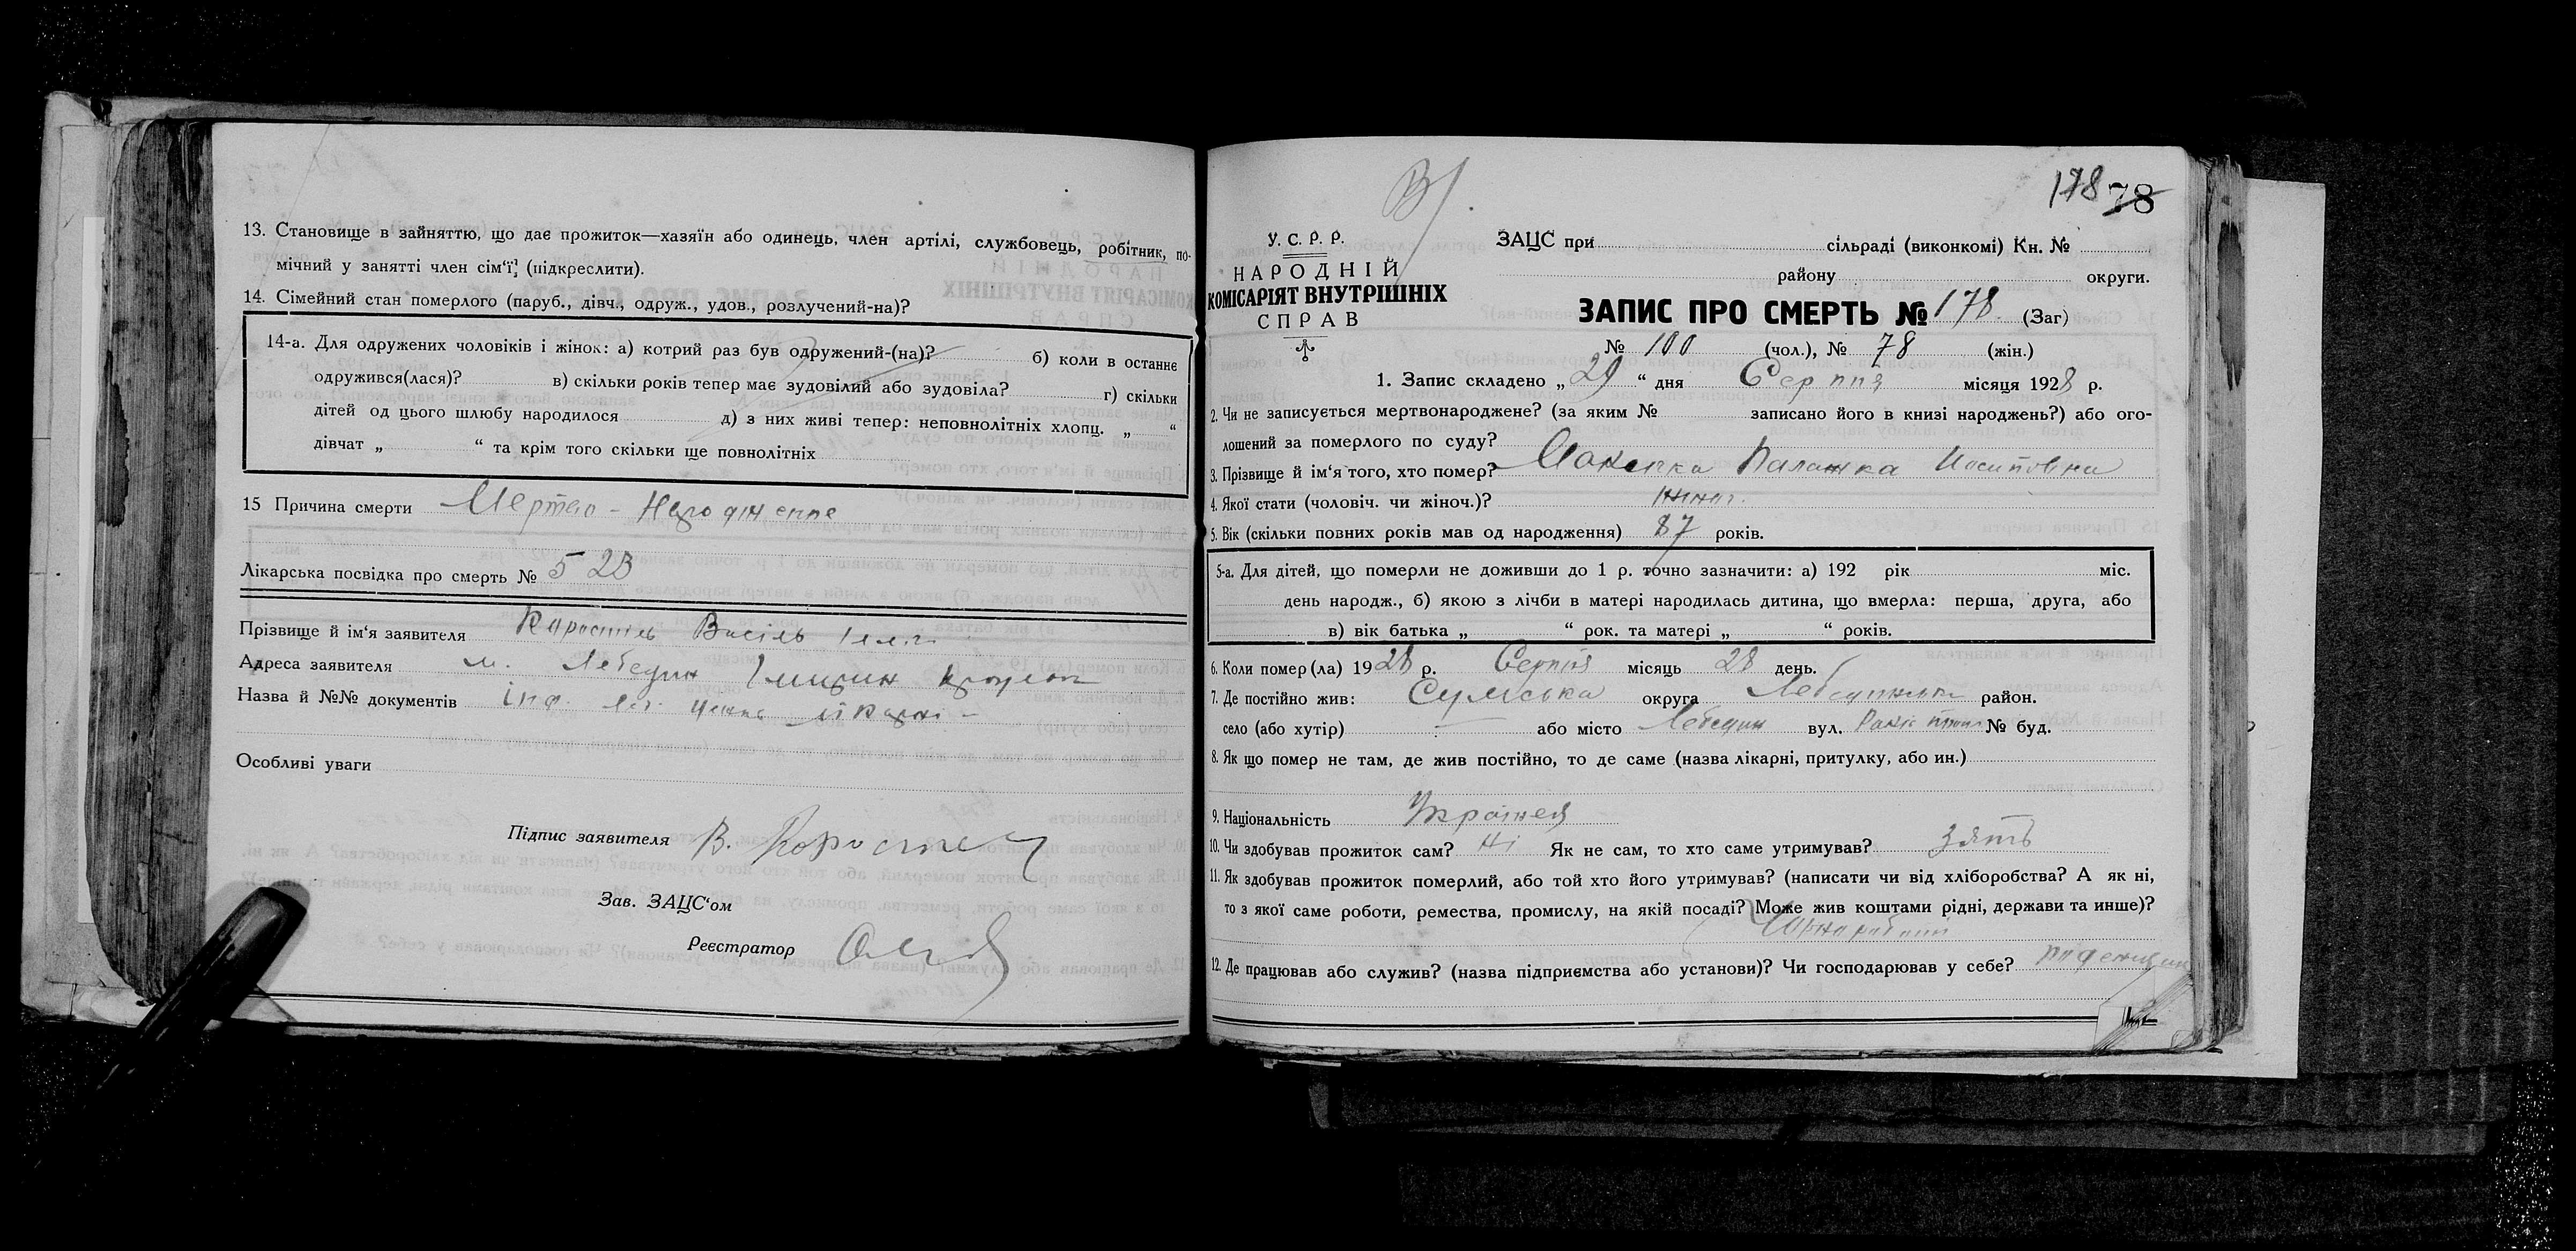 13. Становище в зайняттю, що дає прожиток—хазяїн або одинець, член артілі, службовець, робітник, по-
мічний у занятті член сім'ї (підкреслити).
14. Сімейний стан померлого (паруб., дівч., одруж., удов., розлучений-на)?
14-а. Для одружених чоловіків і жінок: а) котрий раз був одружений-(на)? б) коли в останнє
одружився(лася)? в) скільки років тепер має зудовілий або зудовіла? г) скільки
дітей од цього шлюбу народилося д) з них живі тепер: неповнолітніх хлопц. „ “
дівчат „ “ та крім того скільки ще повнолітніх
15 Причина смерти Мертво-
Лікарська посвідка про смерть № 523
Прізвище й ім'я заявителя Василь
Адреса заявителя м. Лебедин
Назва й №№ документів
Особливі уваги
Підпис заявителя В.
Зав. ЗАЦС'ом
Реєстратор
178 78
У. С. Р. Р.
НАРОДНІЙ
КОМІСАРІЯТ ВНУТРІШНІХ
СПРАВ
ЗАЦС при сільраді (виконкомі) Кн. №
району округи.
ЗАПИС ПРО СМЕРТЬ № 178. (Заг)
№ 100 (чол.), № 78 (жін.)
1. Запис складено „ 29 “ дня Серпня місяця 1928 р.
2. Чи не записується мертвонароджене? (за яким № записано його в книзі народжень?) або ого-
лошений за померлого по суду?
3. Прізвище й ім'я того, хто помер? Палажка
4. Якої стати (чоловіч. чи жіноч.)? жіноч.
5. Вік (скільки повних років мав од народження) 87 років.
5-а. Для дітей, що померли не доживши до 1 р. точно зазначити: а) 192 рік міс.
день народж., б) якою з лічби в матері народилась дитина, що вмерла: перша, друга, або
в) вік батька „ “ рок. та матері „ “ років.
6. Коли помер (ла) 1928 р. Серпня місяць 28 день.
7. Де постійно жив: Сумська округа Лебединський район.
село (або хутір) — або місто Лебедин вул. № буд.
8. Як що помер не там, де жив постійно, то де саме (назва лікарні, притулку, або ин.)
9. Національність
10. Чи здобував прожиток сам? Ні Як не сам, то хто саме утримував? зять
11. Як здобував прожиток померлий, або той хто його утримував? (написати чи від хліборобства? А як ні,
то з якої саме роботи, ремества, промислу, на якій посаді? Може жив коштами рідні, держави та инше)?
12. Де працював або служив? (назва підприємства або установи)? Чи господарював у себе?